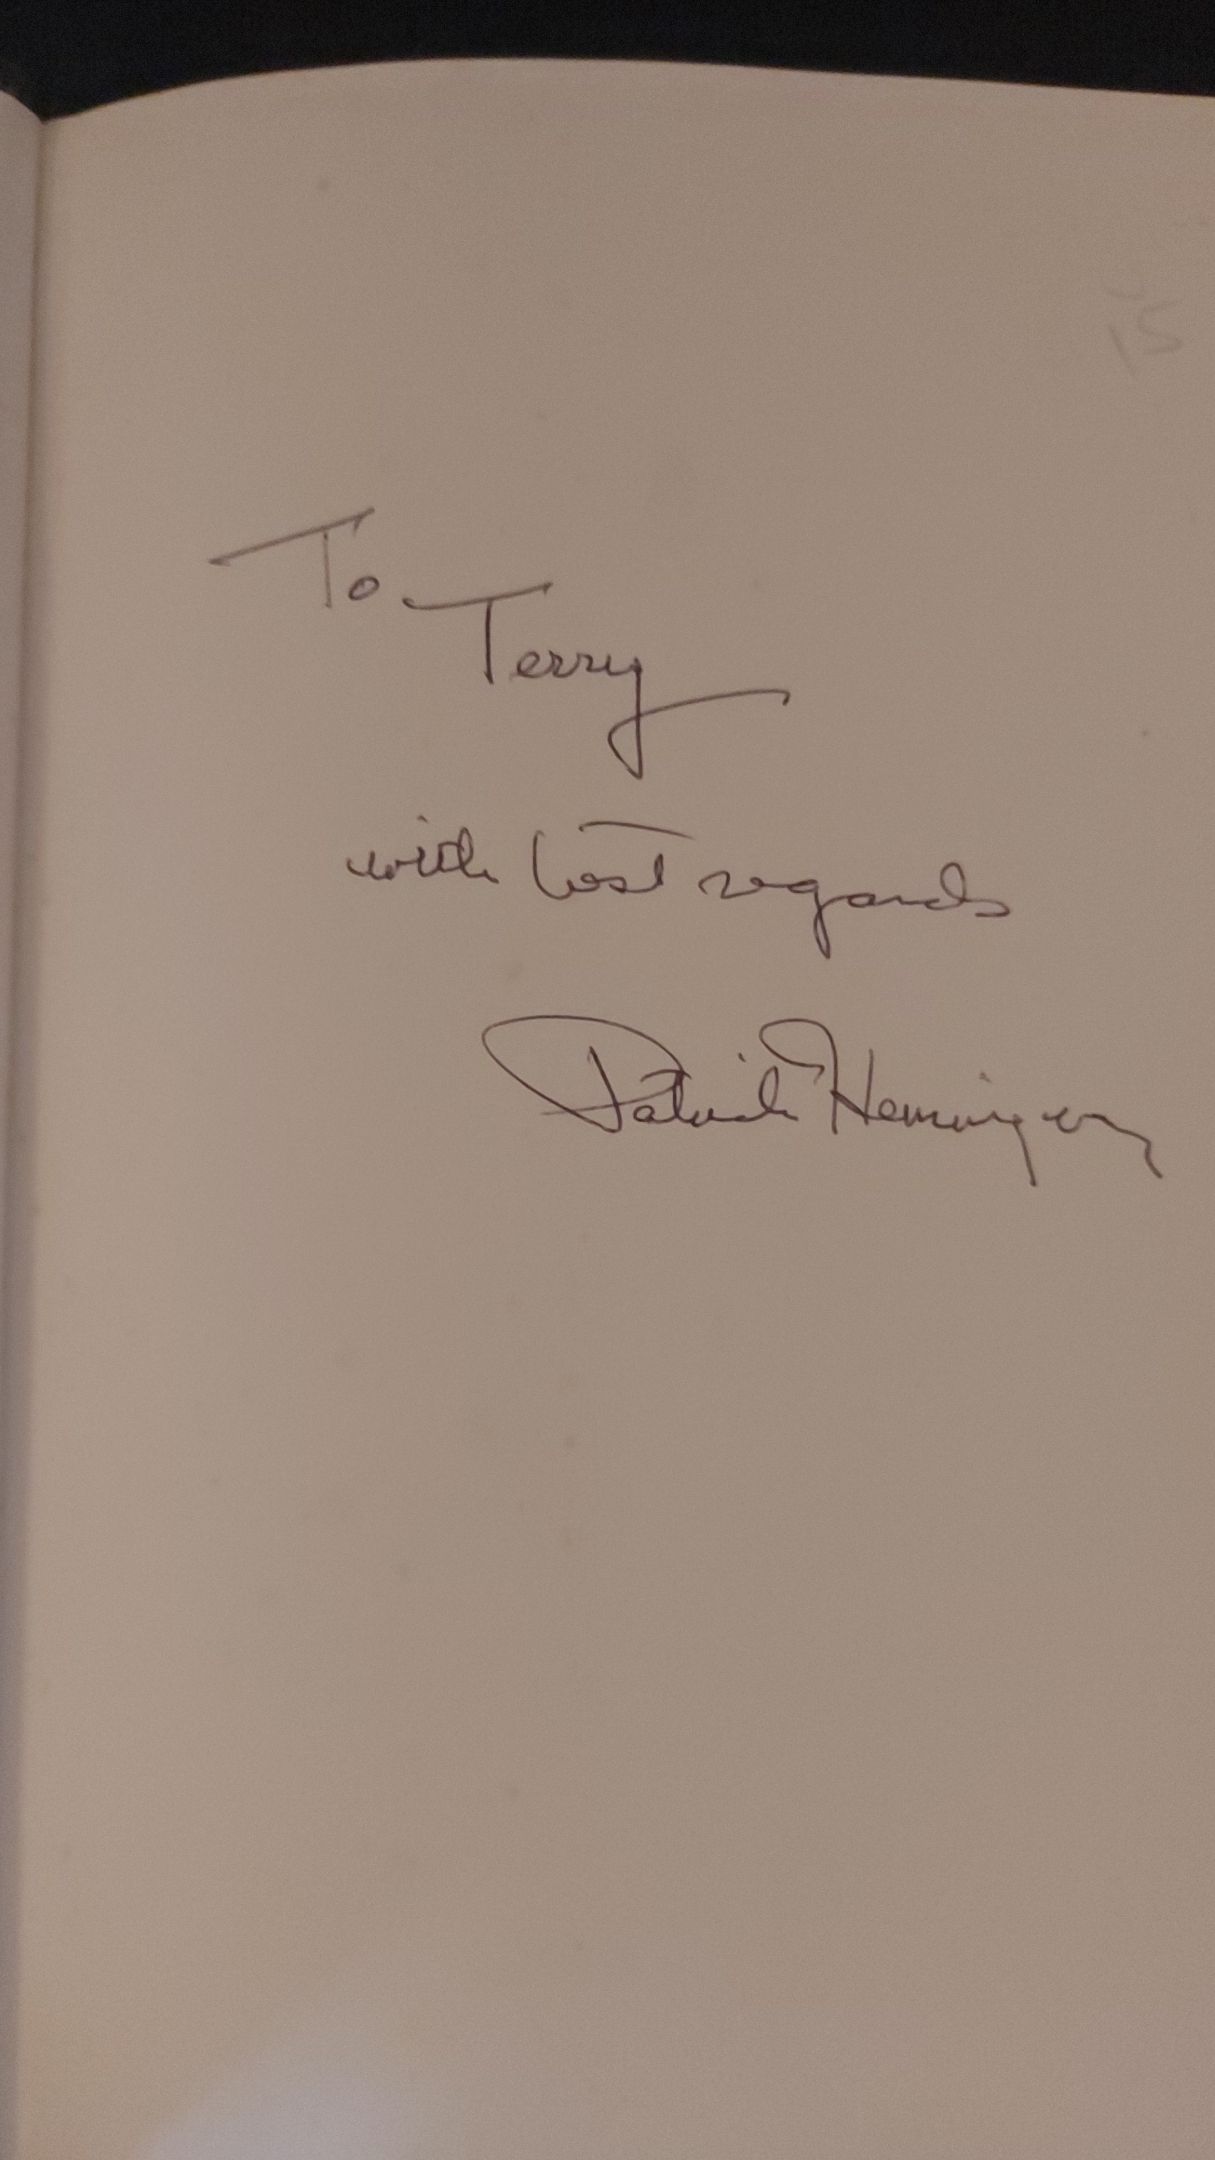 15
To
Terry
with best regards
Patrick Hemingway